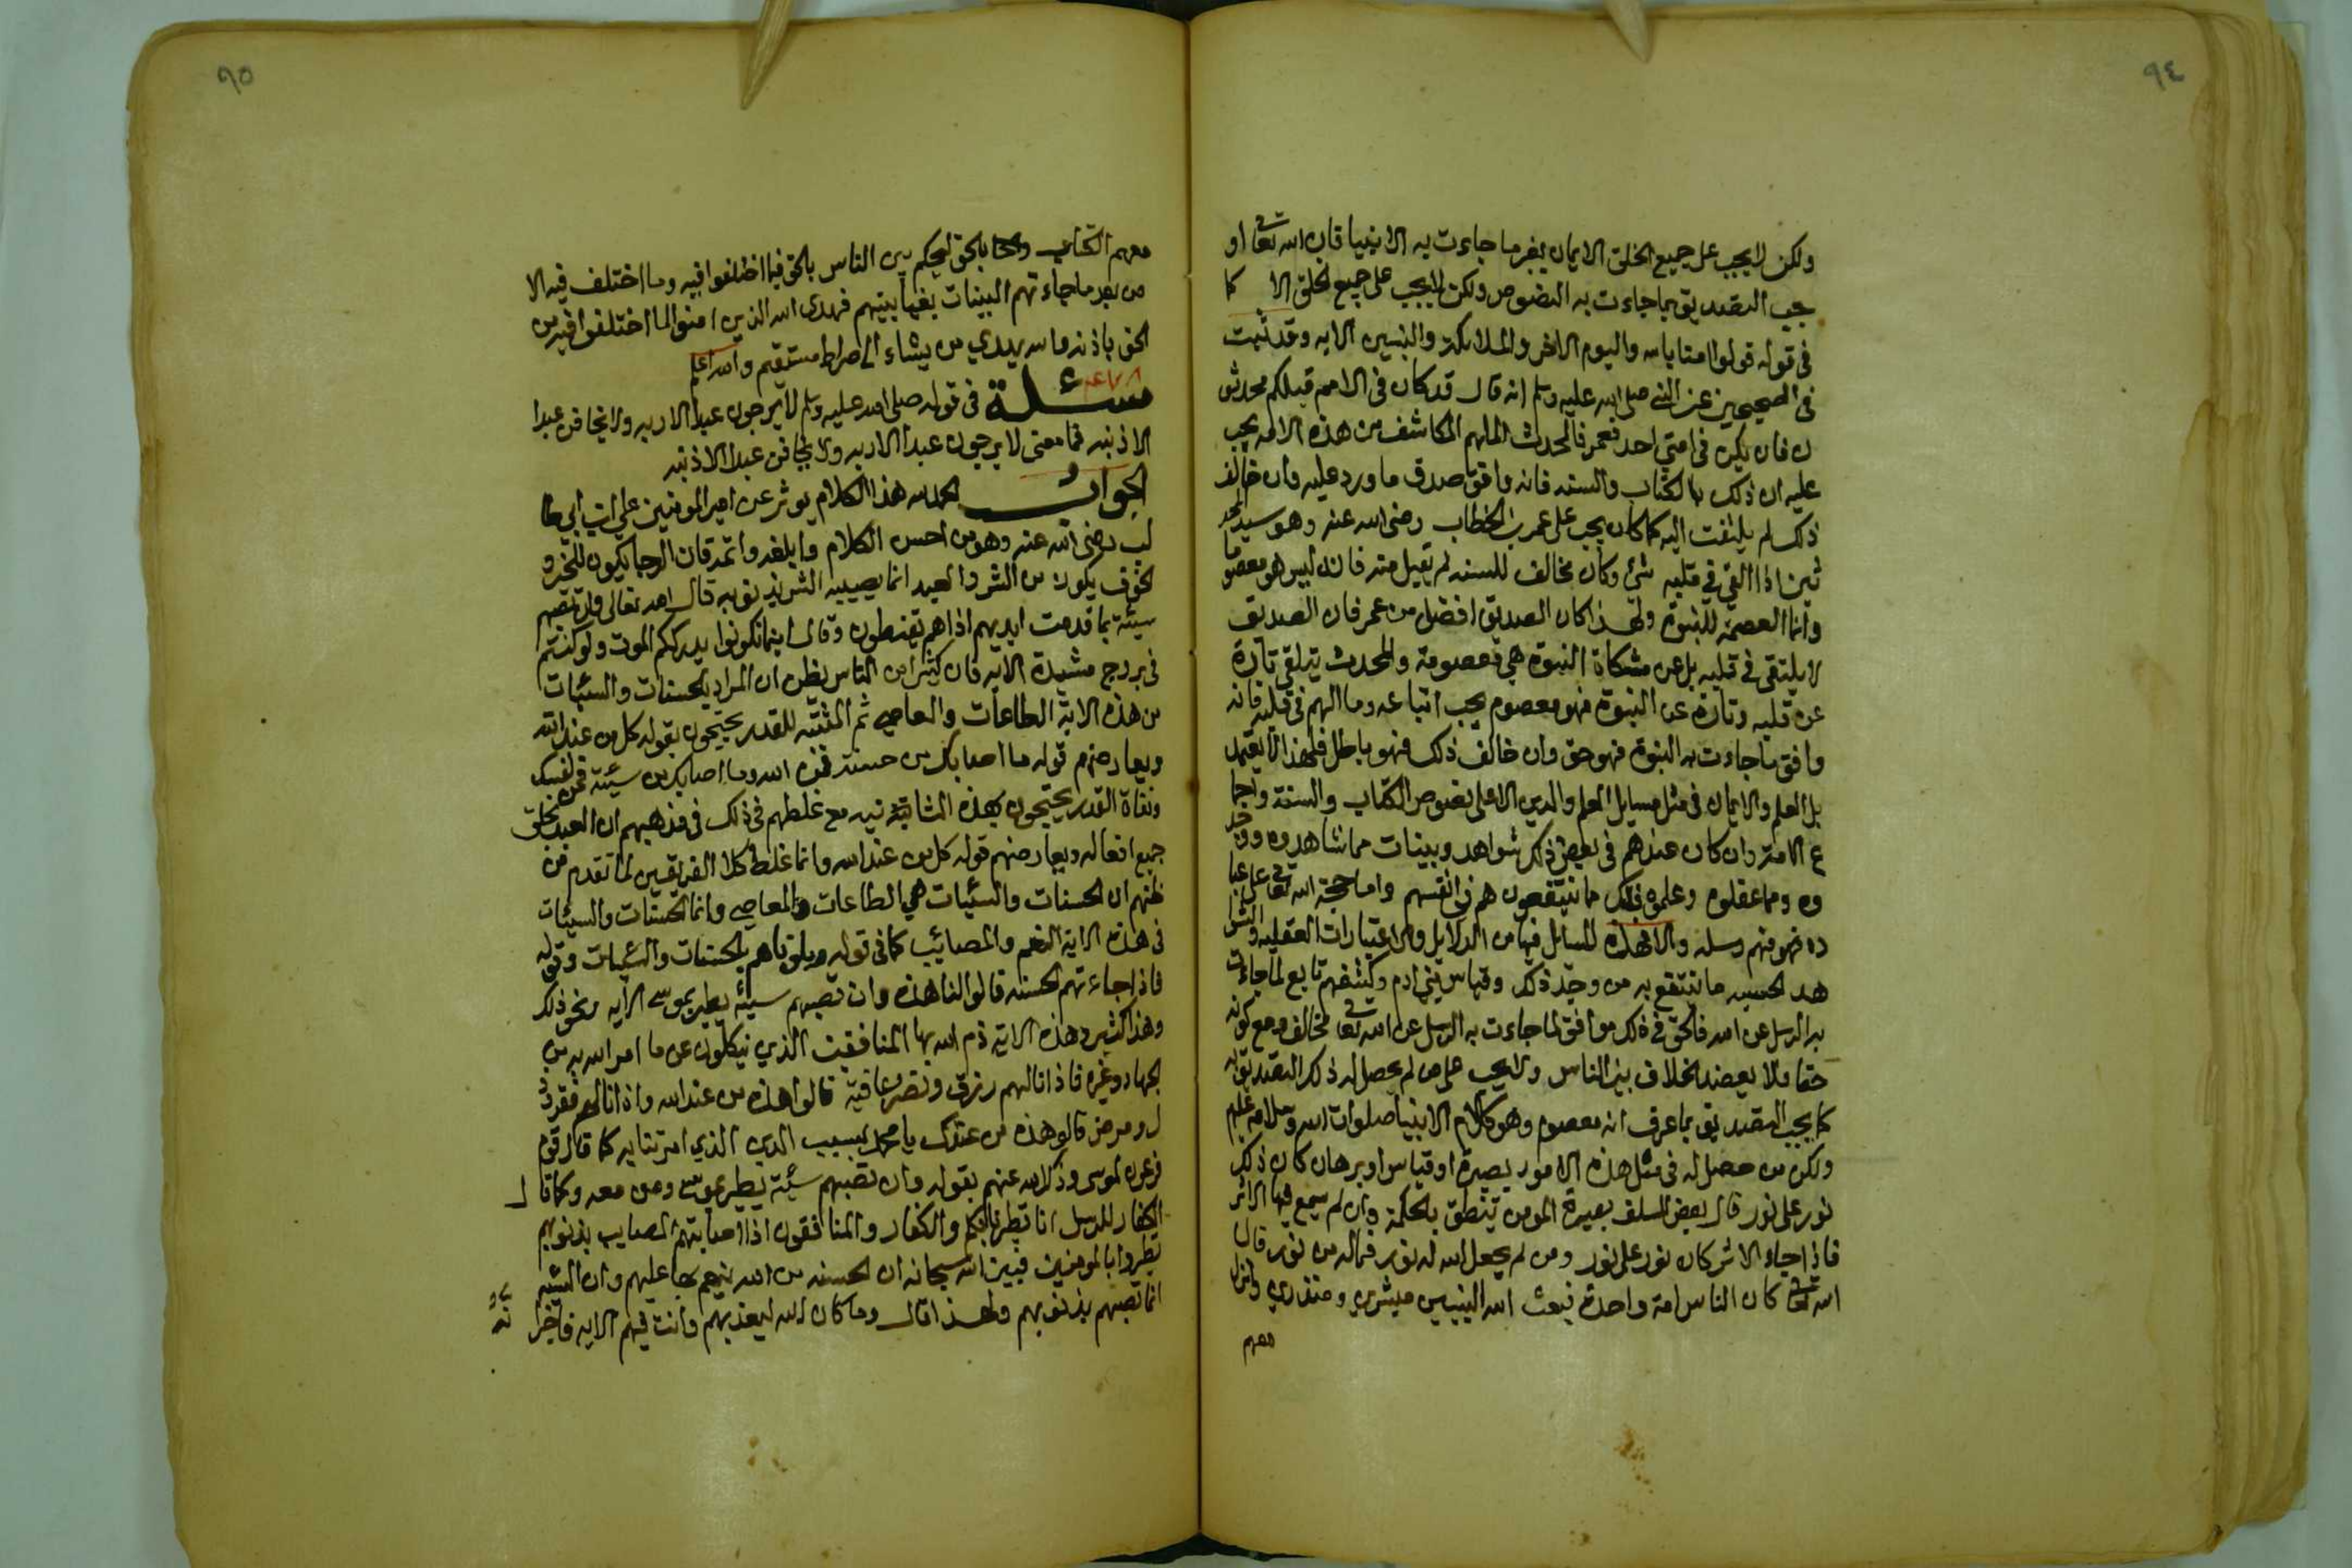 ٩٤
ولكن لا يجب على جميع الخلق الايمان بغير ما جاءت به الانبيا فان الله تعا او
جب التصديق بما جاءت به النصوص ولكن لا يجب على جميع الخلق الا كما
في قوله قولوا امنا بالله واليوم الاخر والملائكة والنبيين الايه وقد ثبت
في الصحيحين عن النبي صلى الله عليه وسلم انه قال قد كان في الامم قبلكم محدثو
ن فان يكن في امتي احد فعمر فالمحدث الملهم المكاشف من هذه الامه يجب
عليه ان ذلك بالكتاب والسنه فانه وافق صدق ما ورد عليه وان خالف
ذلك لم يلتفت اليه كما كان يجب على عمر بن الخطاب رضى الله عنه وهو سيد المحد
ثين اذا القي في قلبه شئ وكان مخالف للسنه لم يقبل منه فانه ليس هو معصوما
وانما العصمة للنبوة ولهذا كان الصديق افضل من عمر فان الصديق
لا يلتقى في قلبه بل عن مشكاة النبوة هي معصومة والمحدث يتلقي تارة
عن قلبه وتارة عن النبوة فهو معصوم يجب اتباعه وما الهم في قلبه فانه
وافق ما جاءت به النبوة فهو حق وان خالف ذلك فهو باطل فلهذا لا يعتمد
بل العلم والايمان في مثل مسايل العلم والدين الا على نصوص الكتاب والسنة واجما
ع الامة وان كان عندهم في بعض ذلك شواهد وبينات مما شاهدوه ووجد
وه ومما عقلوه وعلموه ذلك ما ينتفعون هم في انفسهم واما حجة الله تعا على عبا
ده فهو منهم رسله والا فهذه المسايل فيها من الدلايل والاعتبارات العقليه والشوا
هد الحسيه ما ينتفع به من وجد ذلك وقياس بني ادم وكشفهم تابع لما جاءت
به الرسل عن الله فالحق في ذلك موافق لما جاءت به الرسل عن الله تعا مخالف ومع كونه
حقا ولا يعضد الخلاف بين الناس ولا يجب على من لم يحصل له ذلك التصديق به
كما يجب التصديق بما عرف انه معصوم وهو كلام الانبيا صلوات الله وسلامه عليهم
ولكن من حصل له في مثل هذه الامور بصيرة او قياس او برهان كان ذلك
نور على نور قال بعض السلف بصيرة المومن تنطق بالحكمة وان لم يسمع فيها الاثر
فاذا جاء الاثر كان نور على نور ومن لم يجعل الله له نور فماله من نور قال
الله تعا كان الناس امة واحدة فبعث الله النبيين مبشرين ومنذرين وانزل
معهم
٩٥
معهم الكتاب بالحق ليحكم بين الناس بالحق فيما اختلفوا فيه وما اختلف فيه الا
من بعد ما جاءتهم البينات بغيا بينهم فهدى الله الذين امنوا لما اختلفوا فيه من
الحق باذنه والله يهدي من يشاء الى صراط مستقيم والله اعلم
مسئلة في قوله صلى الله عليه وسلم لا يرجون عبدا الا ربه ولا يخافن عبدا
الا ذنبه فما معنى لا يرجون عبدا الا ربه ولا يخافن عبدا الا ذنبه
الجواب الحمد لله هذا الكلام يوثر عن امير المومنين علي ابن ابي طا
لب رضى الله عنه وهو من احسن الكلام وابلغه واتمه فان الرجا يكون للخير و
الخوف يكون من الشر والعبد انما يصيبه الشر بذنوبه قال الله تعالى وان تصبهم
سيئة بما قدمت ايديهم اذا هم يقنطون وقال اينما تكونوا يدرككم الموت ولو كنتم
في بروج مشيدة الايه فان كثيرا من الناس يظن ان المراد بالحسنات والسيئات
من هذه الاية الطاعات والمعاصي ثم المثبته للقدر يحتجون بقوله كل من عند الله
ويعارضهم قوله ما اصابك من حسنة فمن الله وما اصابك من سيئة فمن نفسك
ونفاة القدر يحتجون بهذه مع غلطهم في ذلك في مذهبهم ان العبد يخلق
جميع افعاله ويعارضهم قوله كل من عند الله وانما غلط كلا الفريقين لما تقدم من
ظنهم ان الحسنات والسيئات هي الطاعات والمعاصي وانما الحسنات والسيئات
في هذه الاية النعم والمصائب كما في قوله وبلوناهم بالحسنات والسيئات وقوله
فاذا جاءتهم الحسنه قالوا لنا هذه وان تصبهم سيئة يطيروا بموسى الايه ونحو ذلك
وهذا كثير وهذه الاية ذم الله بها المنافقين الذين ينكلون عن ما امر الله به من
الجهاد وغيره فاذا نالهم رزق ونصر وعافية قالوا هذه من عند الله واذا نالهم فقر وذ
ل ومرض قالو هذه من عندك يا محمد بسبب الدين الذي امرتنا به كما قال قوم
فرعون لموسى وذكر الله عنهم بقوله وان تصبهم سيئة يطيروا بموسى ومن معه وكما قا ل
الكفار للرسل انا تطيرنا بكم والكفار والمنافقون اذا اصابتهم المصايب بذنوبهم
تطيروا بالمومنين فبين الله سبحانه ان الحسنه من الله ينعم بها عليهم وان السيئه
انما تصبهم بذنوبهم ولهذا قال وما كان الله ليعذبهم وانت فيهم الايه فاخبر